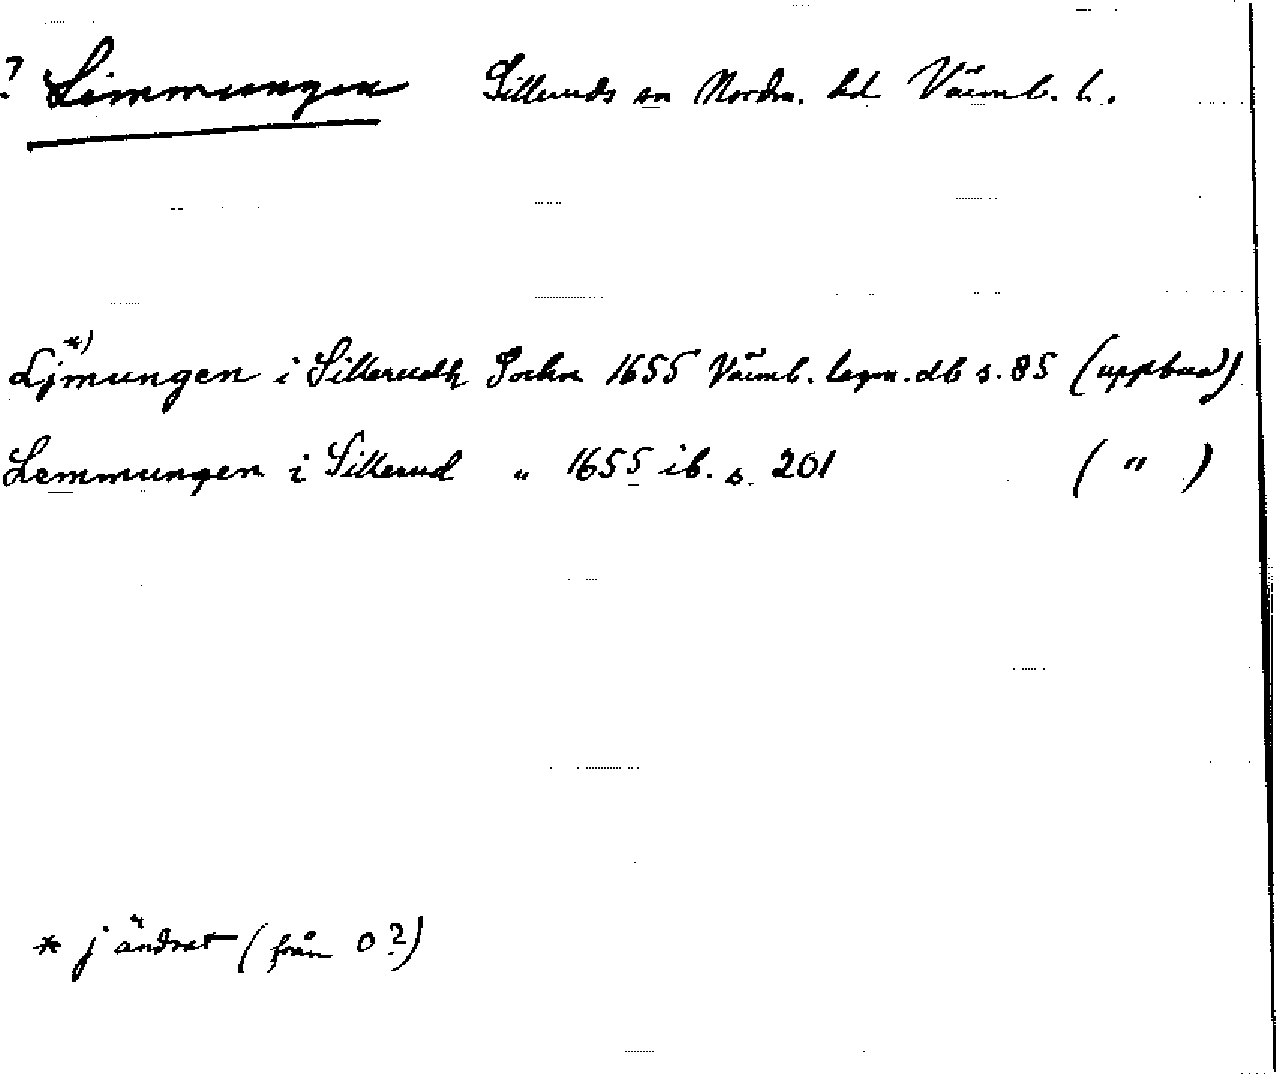 ? Limmungen Silleruds sn Nordm. hd Värml. l.
Ljmungen *) i Sillerudh Sochn 1655 Värml. lagm. db s. 85 (uppbud)
Lemmungen i Sillerud " 1655 ib. s. 201 ( " )
* j ändrat (från o?)